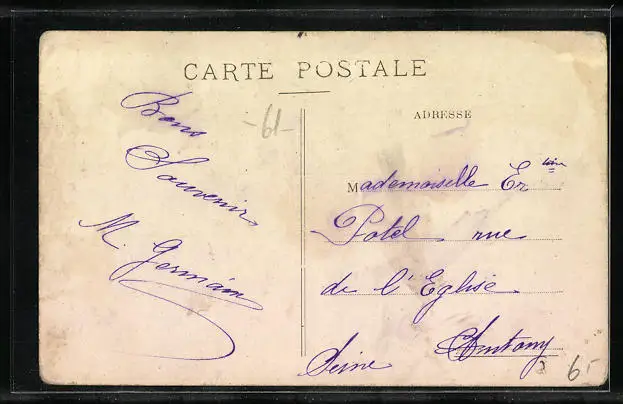 CARTE POSTALE
-61-
Bons
Souvenirs
M. Germain
ADRESSE
Mademoiselle Er^tine
Potel rue
de l'Eglise
Antony
Seine
6.-